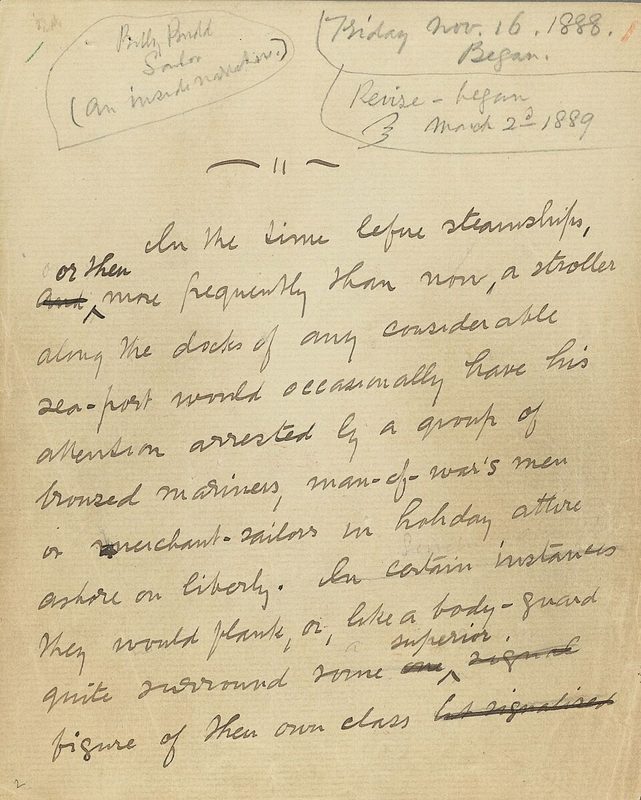 Billy Budd
Sailor
(An inside narrative.)
Friday Nov. 16. 1888.
Began.
Revise - began
March 2d 1889
In the time before steamships,
or then
and more frequently than now, a stroller
along the docks of any considerable
sea-port would occasionally have his
attention arrested by a group of
bronzed mariners, man-of-war's men
or merchant-sailors in holiday attire
ashore on liberty. In certain instances
they would flank, or, like a body-guard
superior
quite surround some one signal
figure of their own class
2